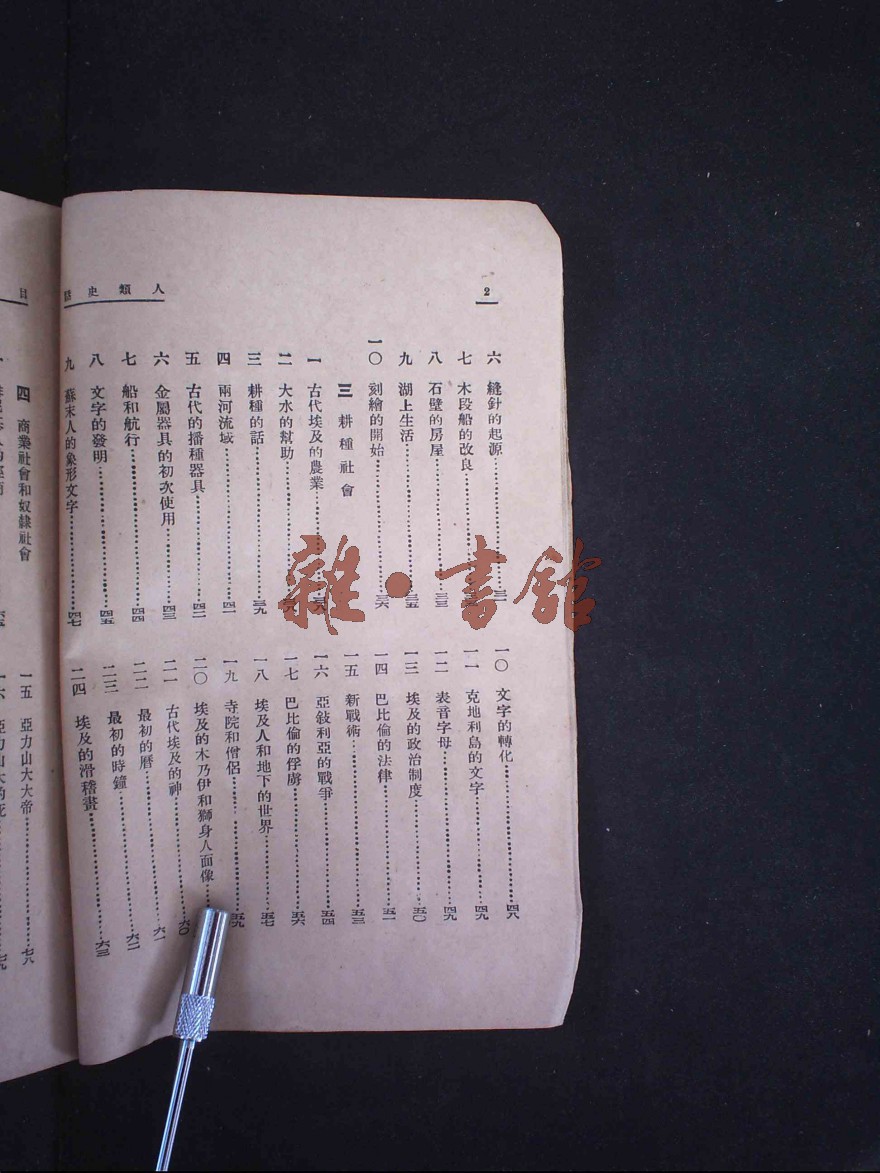 2
人類史話
六 縫針的起源
七 木段船的改良
八 石壁的房屋 三三
九 湖上生活 三五
一〇 刻繪的開始 三六
三 耕種社會
一 古代埃及的農業
二 大水的幫助
三 耕種的話 三九
四 兩河流域 四一
五 古代的播種器具 四二
六 金屬器具的初次使用 四三
七 船和航行 四四
八 文字的發明 四五
九 蘇末人的象形文字 四七
一〇 文字的轉化 四八
一一 克地利島的文字 四九
一二 表音字母 四九
一三 埃及的政治制度 五〇
一四 巴比倫的法律 五一
一五 新戰術 五三
一六 亞敍利亞的戰爭 五四
一七 巴比倫的俘虜 五六
一八 埃及人和地下的世界 五七
一九 寺院和僧侶 五九
二〇 埃及的木乃伊和獅身人面像
二一 古代埃及的神 六〇
二二 最初的曆 六一
二三 最初的時鐘 六二
二四 埃及的滑稽畫 六三
目
四 商業社會和奴隸社會
一五 亞力山大大帝 七八
一六 亞力山大的死 七九
雜·書館